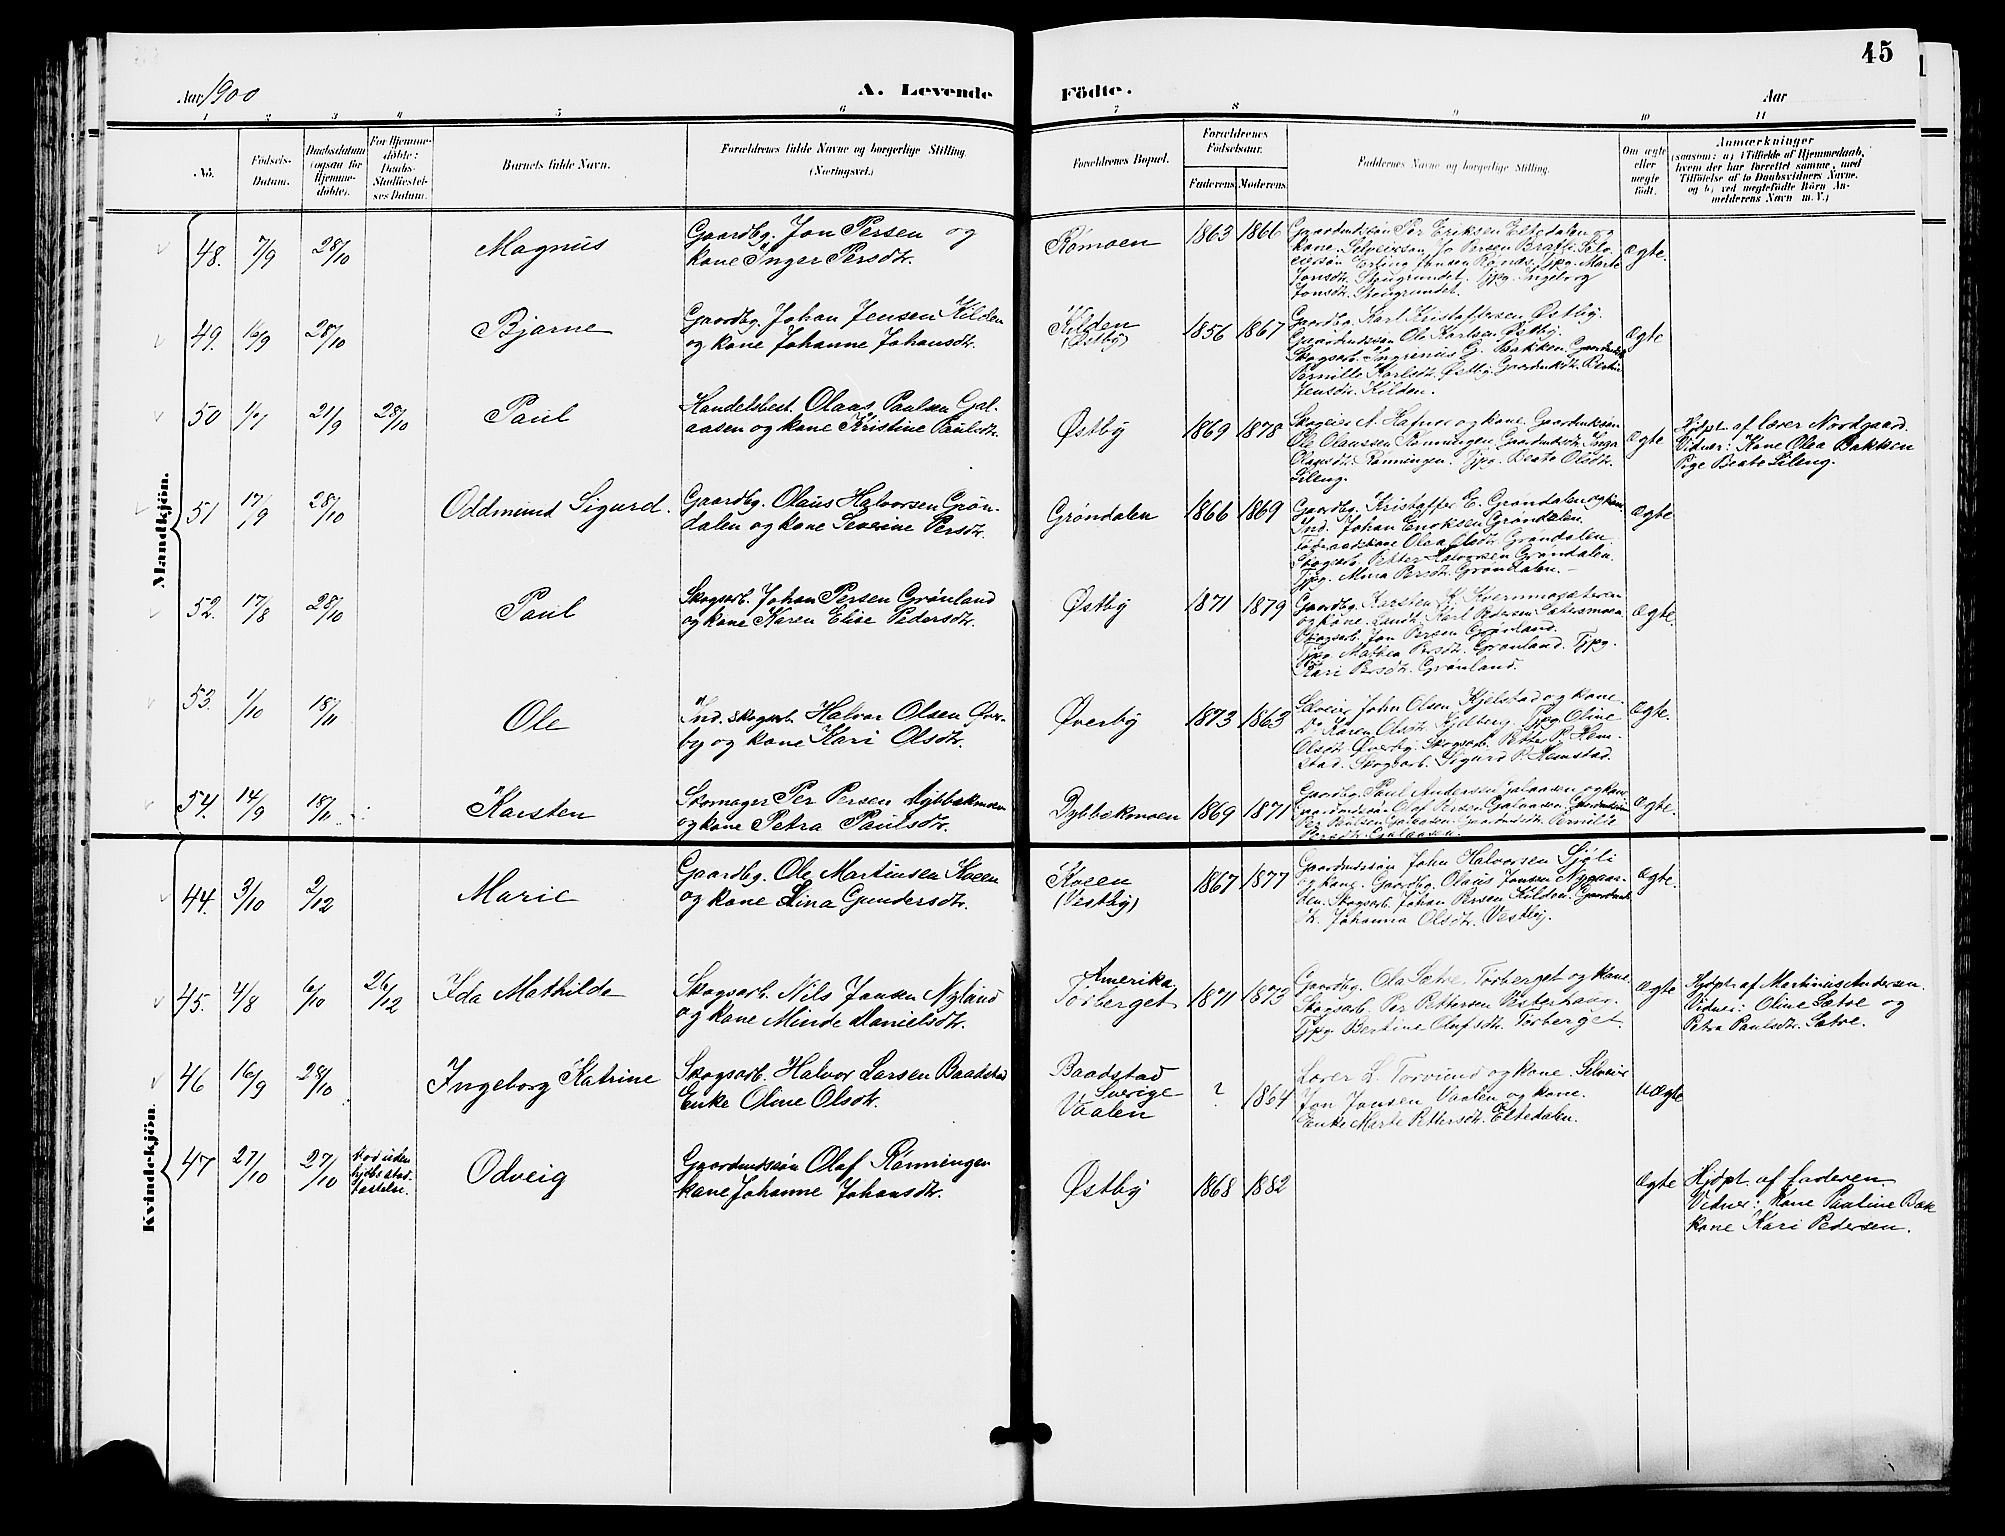 45
Aar 1900
A. Levende
Födte.
Aar
1 2 3 4 5 6 7 8 9 10 11
No.
Födsels-
Datum.
Daabsdatum
(ogsaa for
Hjemme-
döbte).
For Hjemme-
döbte:
Daabs-
Stadfæstel-
ses Datum.
Barnets fulde Navn.
Forældrenes fulde Navne og borgerlige Stilling.
(Næringsvei.)
Forældrenes Bopæl.
Forældrenes
Födselsaar.
Faderens
Moderens
Faddernes Navne og borgerlige Stilling.
Om ægte
eller
uægte
født.
Anmærkninger
(saasom: a) i Tilfælde af Hjemmedaab,
hvem der har forrettet samme, med
Tilföielse af to Daabsvidners Navne,
og b) ved uægtefødte Börn An-
melderens Navn m. V.)
Mandkjön.
48. 7/9 28/10 Magnus
Gaardbg. Jon Persen og
kone Inger Persdtr.
Rømoen 1863 1866
Gaardmdssøn Per Eriksen Eltedalen og
kone. Selveierssøn Jo Persen Braffi. Selv-
eierssøn Erling Jonsen Rønæs. Tjpg. Marte
Jonsdtr. Skougrundet. Tjpg. Ingeborg
Jonsdtr. Skougrundet.
Ægte.
49. 16/9 28/10 Bjarne
Gaardbg. Johan Jensen Kilden
og kone Johanne Johansdtr.
Kilden
(Østby)
1856 1867
Gaardbg. Karl Kristaffersen Østby.
Gaardmdssøn Ole Karlsen Østby.
Skogsarb. Ingrenius G. Bakken. Gaardmdsdtr.
Pernille Karlsdtr. Østby. Gaardmdsdtr. Bertin
Jensdtr. Kilden.
Ægte
50 1/7 21/9 28/10 Paul
Handelsbest. Olaus Paulsen Gal-
aasen og kone Kristine Paulsdtr.
Østby 1869 1878
Skogeier A. Hafnor og kone. Gaardmdssøn
Ole Olaussen Rønningen Gaardmdsdtr. Inga
Olausdtr. Rønningen. Tjpg. Beate Olsdtr.
Lileng.
Ægte
Hjdpt. af lærer Nordgaard.
Vidner: Kone Olea Bakken
Pige Beate Lileng.
51 17/9 28/10 Oddmund Sigurd.
Gaardbg. Olaus Halvorsen Grøn-
dalen og kone Severine Persdtr.
Grøndalen 1866 1869
Gaardbg. Kristaffer E. Grøndalen og kone
Ind. Johan Enoksen Grøndalen.
kone Olea Olsdtr. Grøndalen.
Skogsarb. Petter Halvorsen Grøndalen.
Tjpg. Mina Persdtr. Grøndalen.
Ægte
52. 17/8 28/10 Paul
Skogsarb. Johan Persen Grønland
og kone Karen Elise Pedersdtr.
Østby 1871 1879
Gaardbg. Karsten H. Kvernmosæteren
og kone. Landh. Karl Pedersen Sætersmoen
Skogsarb. Jon Persen Grønland.
Tjpg. Mathea Persdtr. Grønland. Tjpg.
Kari Persdtr. Grønland.
Ægte.
53. 1/10 18/11 Ole
Ind. skogsarb. Halvor Olsen Øver-
by og kone Kari Olsdtr.
Øverby 1873 1863
Selveier John Olsen Kjelstad og kone.
Karen Olsdtr. Kjelberg. Tjpg. Oline
Olsdtr. Øverby. Skogsarb. Petter P. Hem-
stad. Skogsarb. Sigurd P. Hemstad.
Ægte.
54. 14/9 18/11 Karsten
Skomager Per Persen Dybbækmoen
og kone Petra Paulsdtr.
Dybbækmoen 1869 1871
Gaardbg. Paul Andersen Galaasen og kone
Gaardmdssøn Olof Persen Galaasen. Gaardmdssøn
Per Paulsen Galaasen. Gaardmdsdtr. Pernille
Persdtr. Galaasen.
Ægte.
Kvindekjön.
44. 3/10 2/12 Marie
Gaardbg. Ole Martinsen Koeen
og kone Lina Gundersdtr.
Koeen
(Vestby)
1867 1877
Gaardmdssøn John Halvorsen Sjøli
og kone. Gaardbg. Olaus Jonsen Nygaar-
den. Skogsarb. Johan Persen Kilden. Gaardmds-
dtr. Johanna Olsdtr. Vestby.
Ægte.
45. 4/8 6/10 26/12 Ida Mathilde
Skogsarb. Nils Jansen Nyland
og kone Minde Danielsdtr.
Amerika
Torberget
1871 1873
Gaardbg. Ola Sætre. Torberget og kone.
Skogsarb. Per Pettersen Vesterhaug.
Tjpg. Bertine Olafsdtr. Torberget.
Ægte
Hjdpt. af Martinius Andersen.
Vidner: Oline Sætre og
Petra Paulsdtr. Sætre.
46 16/9 28/10 Ingeborg Katrine
Skogsarb. Halvor Larsen Baadstad
Enke Oline Olsdtr.
Baadstad
Sverige
Vaalen
? 1864
Lærer L. Torvund og kone. Selveier
Jon Jonsen Vaalen og kone.
Enke Marte Pettersdtr. Eltedalen.
Uægte
47 27/10 27/10
død uden
hjdbs stad-
fæstelse.
Odveig
Gaardmdssøn Olaf Rønningen
kone Johanne Johansdtr.
Østby 1868 1882
Ægte
Hjdpt. af faderen.
Vidner: Kone Pauline Bæk
kone Kari Pedersen.